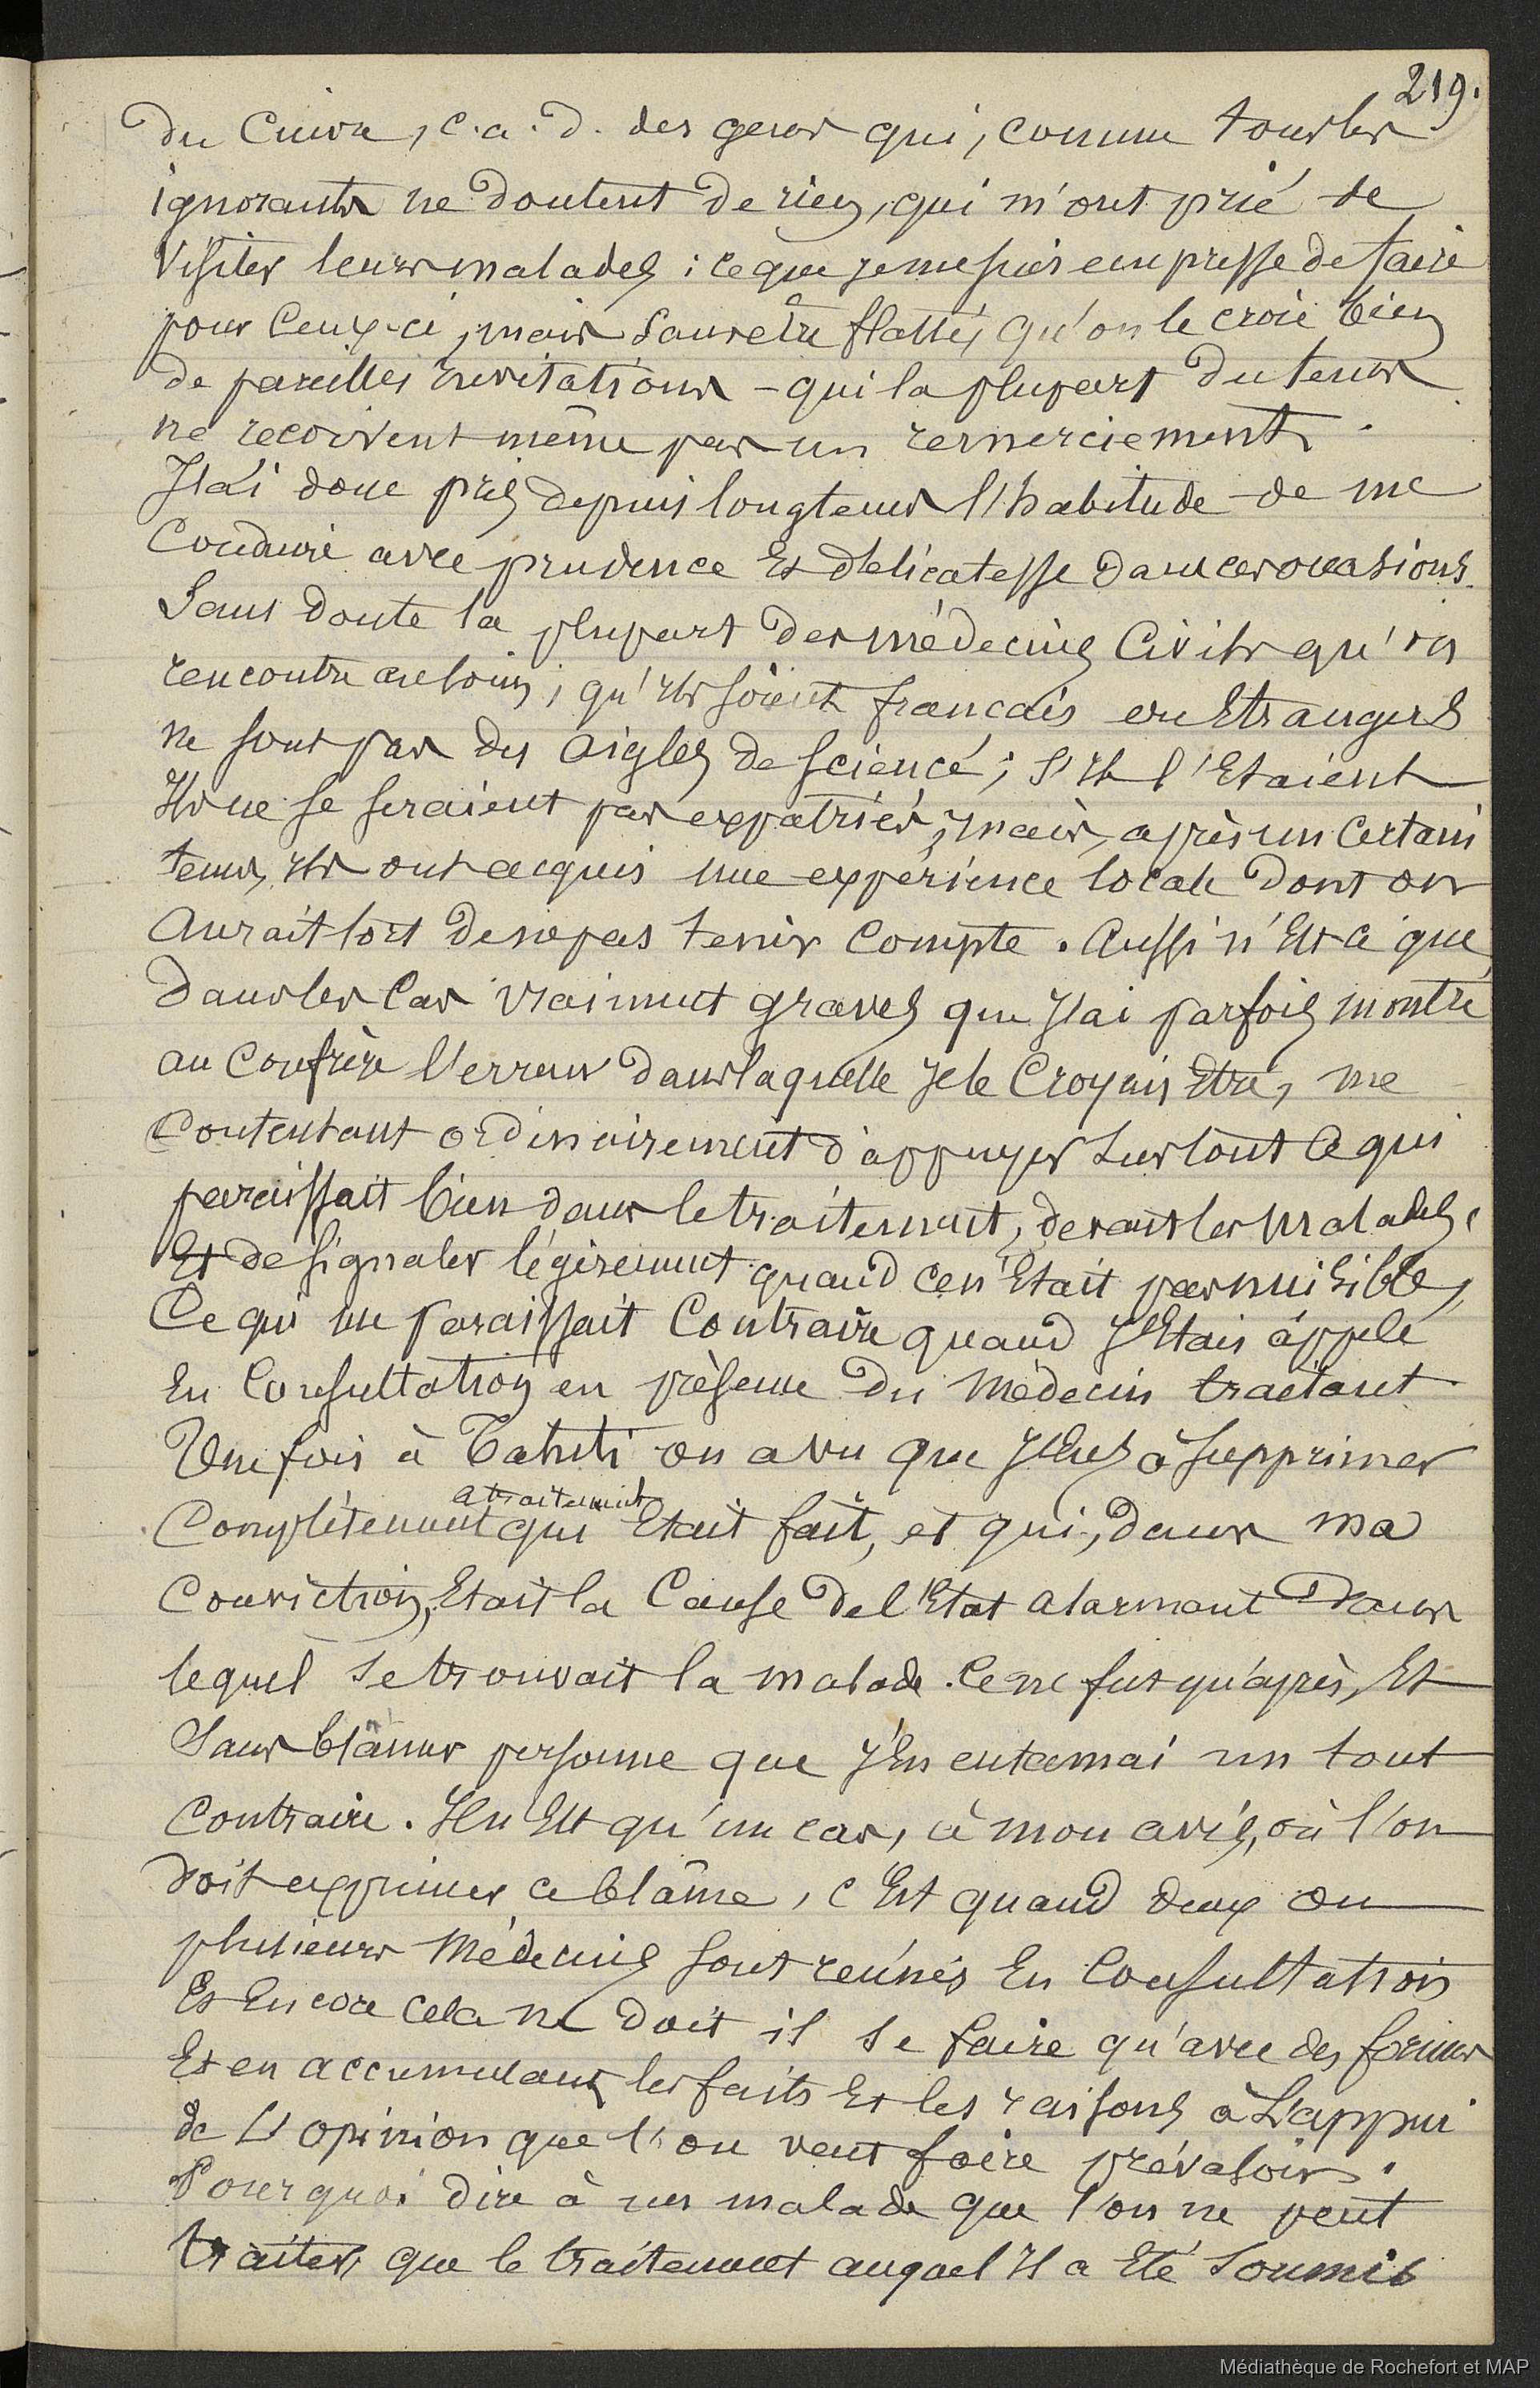 219.
du Cuivre, c.a.d. des gens qui, comme tous les
ignorants ne doutent de rien, qui m'ont prié de
visiter leurs malades ; ce que je me suis empressé de faire
pour ceux-ci, mais sans être flatté, qu'on le croie bien
de pareilles invitations - qui la plupart du tems
ne reçoivent même pas un remerciement.
J'ai donc pris depuis longtems l'habitude de me
Conduire avec prudence Et délicatesse dans ces occasions.
Sans doute la plupart des médecins Civils qu'on
rencontre au loin, qu'ils soient français ou Etrangers
ne sont pas des aigles de science ; s'ils l'Etaient
Ils ne se seraient pas expatriés ; mais, après un Certain
tems, ils ont acquis une expérience locale dont on
Aurait tort de ne pas tenir Compte. Aussi n'Est-ce que
dans les Cas vraiment graves que J'ai parfois montré
au Confrère l'erreur dans laquelle Je le Croyais Etre, me
Contentant ordinairement d'appuyer sur tout ce qui
paraissait bien dans le traitement, devant les malades,
Et de signaler légèrement quand ce n'Etait pas nuisible,
Ce qui me paraissait Contraire quand J'Etais appelé
En Consultation en présence du Médecin traitant.
Une fois à Tahiti on a vu que J'Eus à supprimer
a traitement
Complètement qui Etait fait, et qui, dans ma
Conviction, Etait la Cause de l'Etat alarmant dans
lequel se trouvait la malade. Ce ne fut qu'après, Et
Sans blâmer personne que J'En entamai un tout
Contraire. Il n'Est qu'un cas, à mon avis, où l'on
doit exprimer ce blâme, c'Est quand deux ou
plusieurs Médecins sont réunis En Consultation
Et Encore cela ne doit il se faire qu'avec des formes
Et en accumulant les faits Et les raisons à L'appui
de L'opinion que l'on veut faire prévaloir.
Pourquoi dire à un malade que l'on ne peut
traiter, que le traitement auquel Il a Eté soumis
Médiathèque de Rochefort et MAP